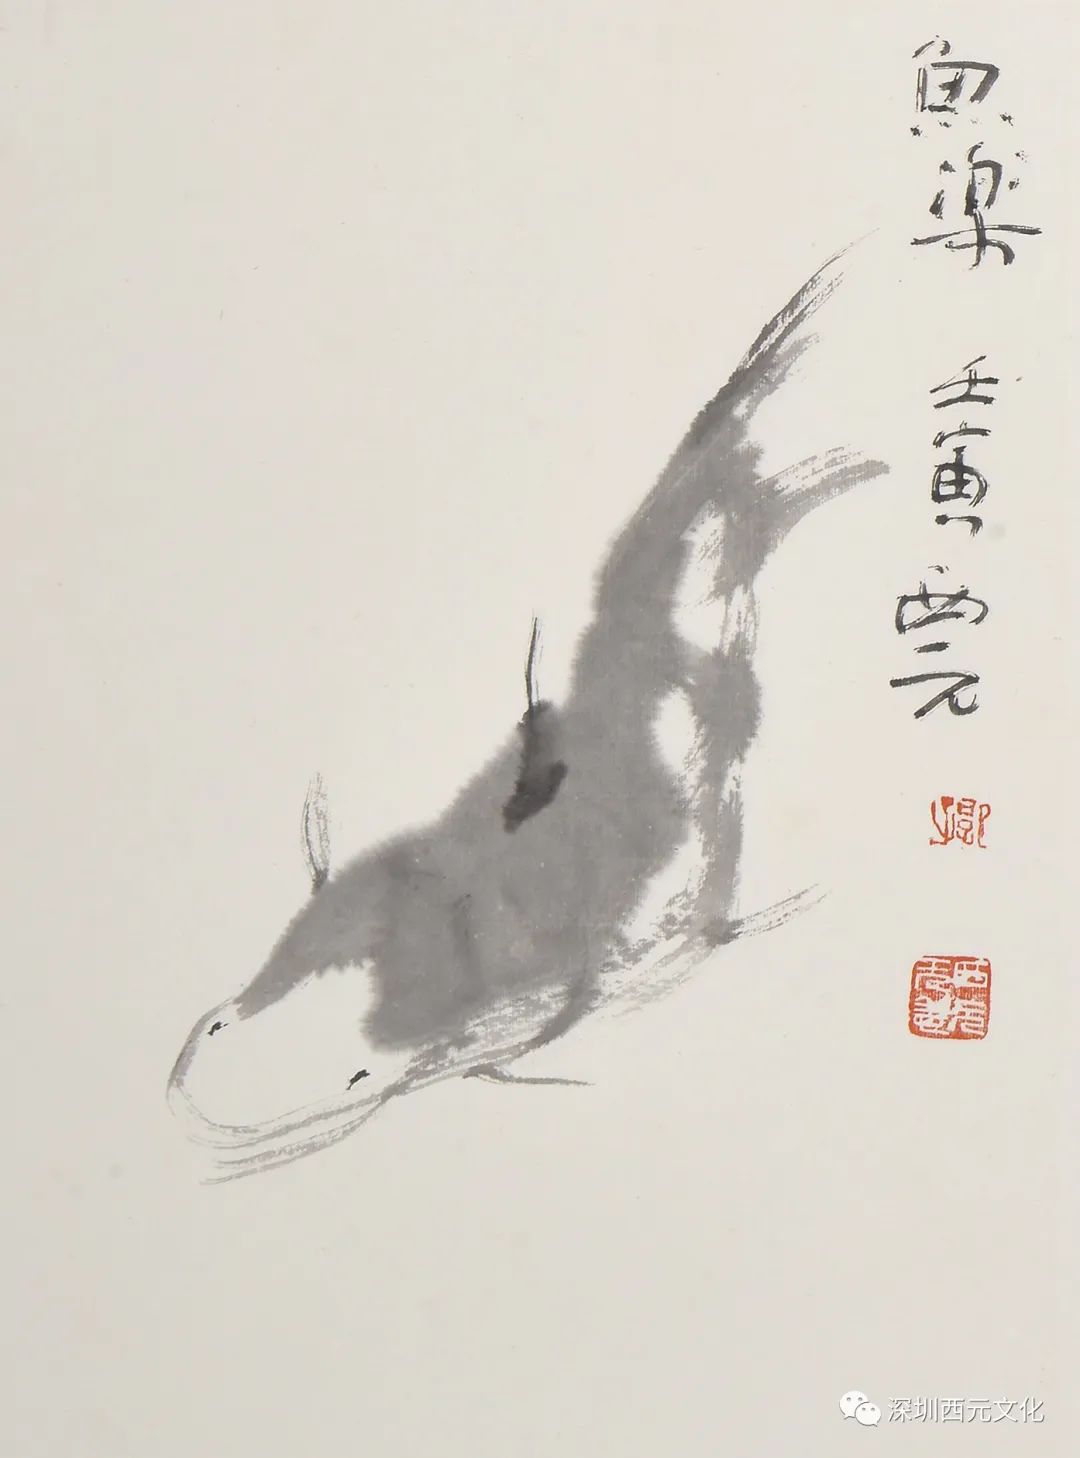 魚楽
壬寅 西元
深圳西元文化